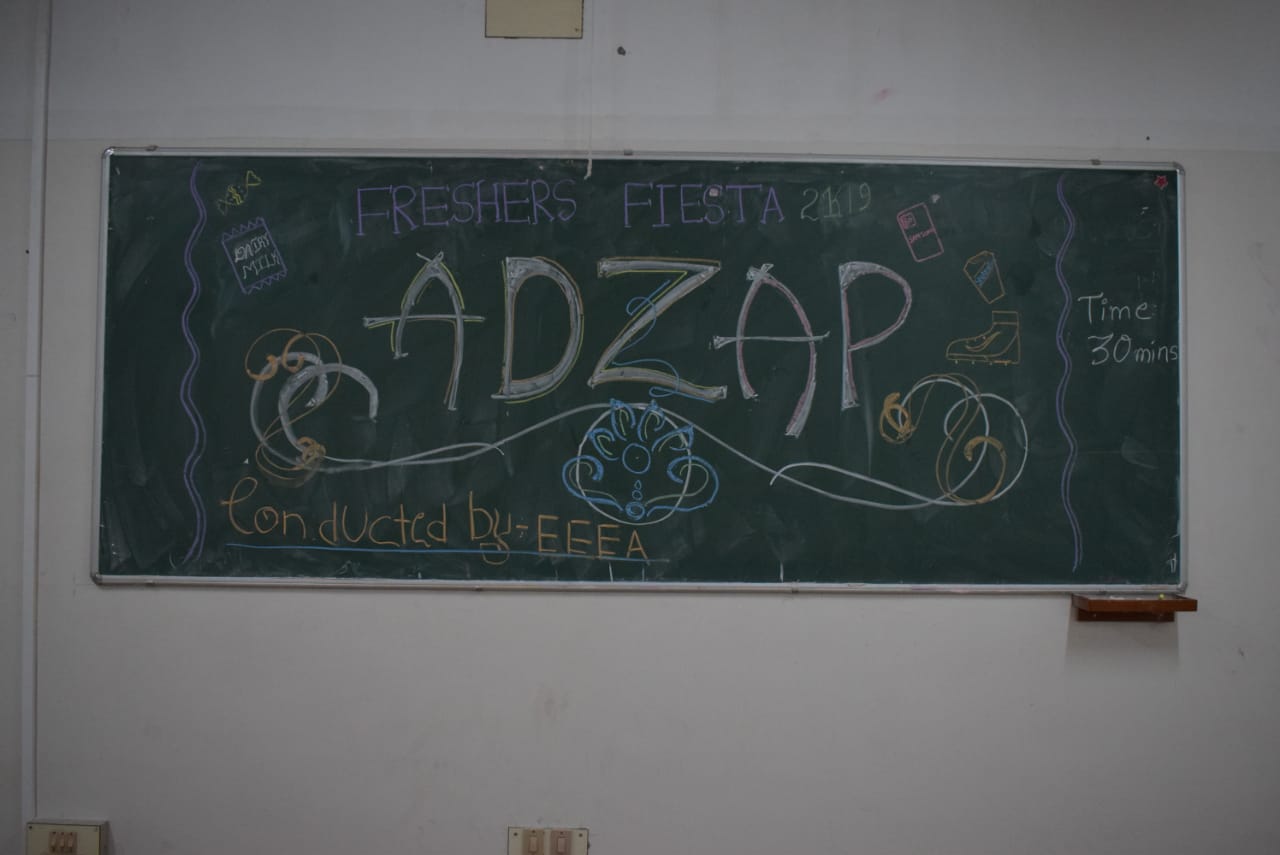 FRESHERS FIESTA 2K19
DAIRY
MILK
SAMSUNG
ADZAP
Time
30mins
Conducted by:- EEEA